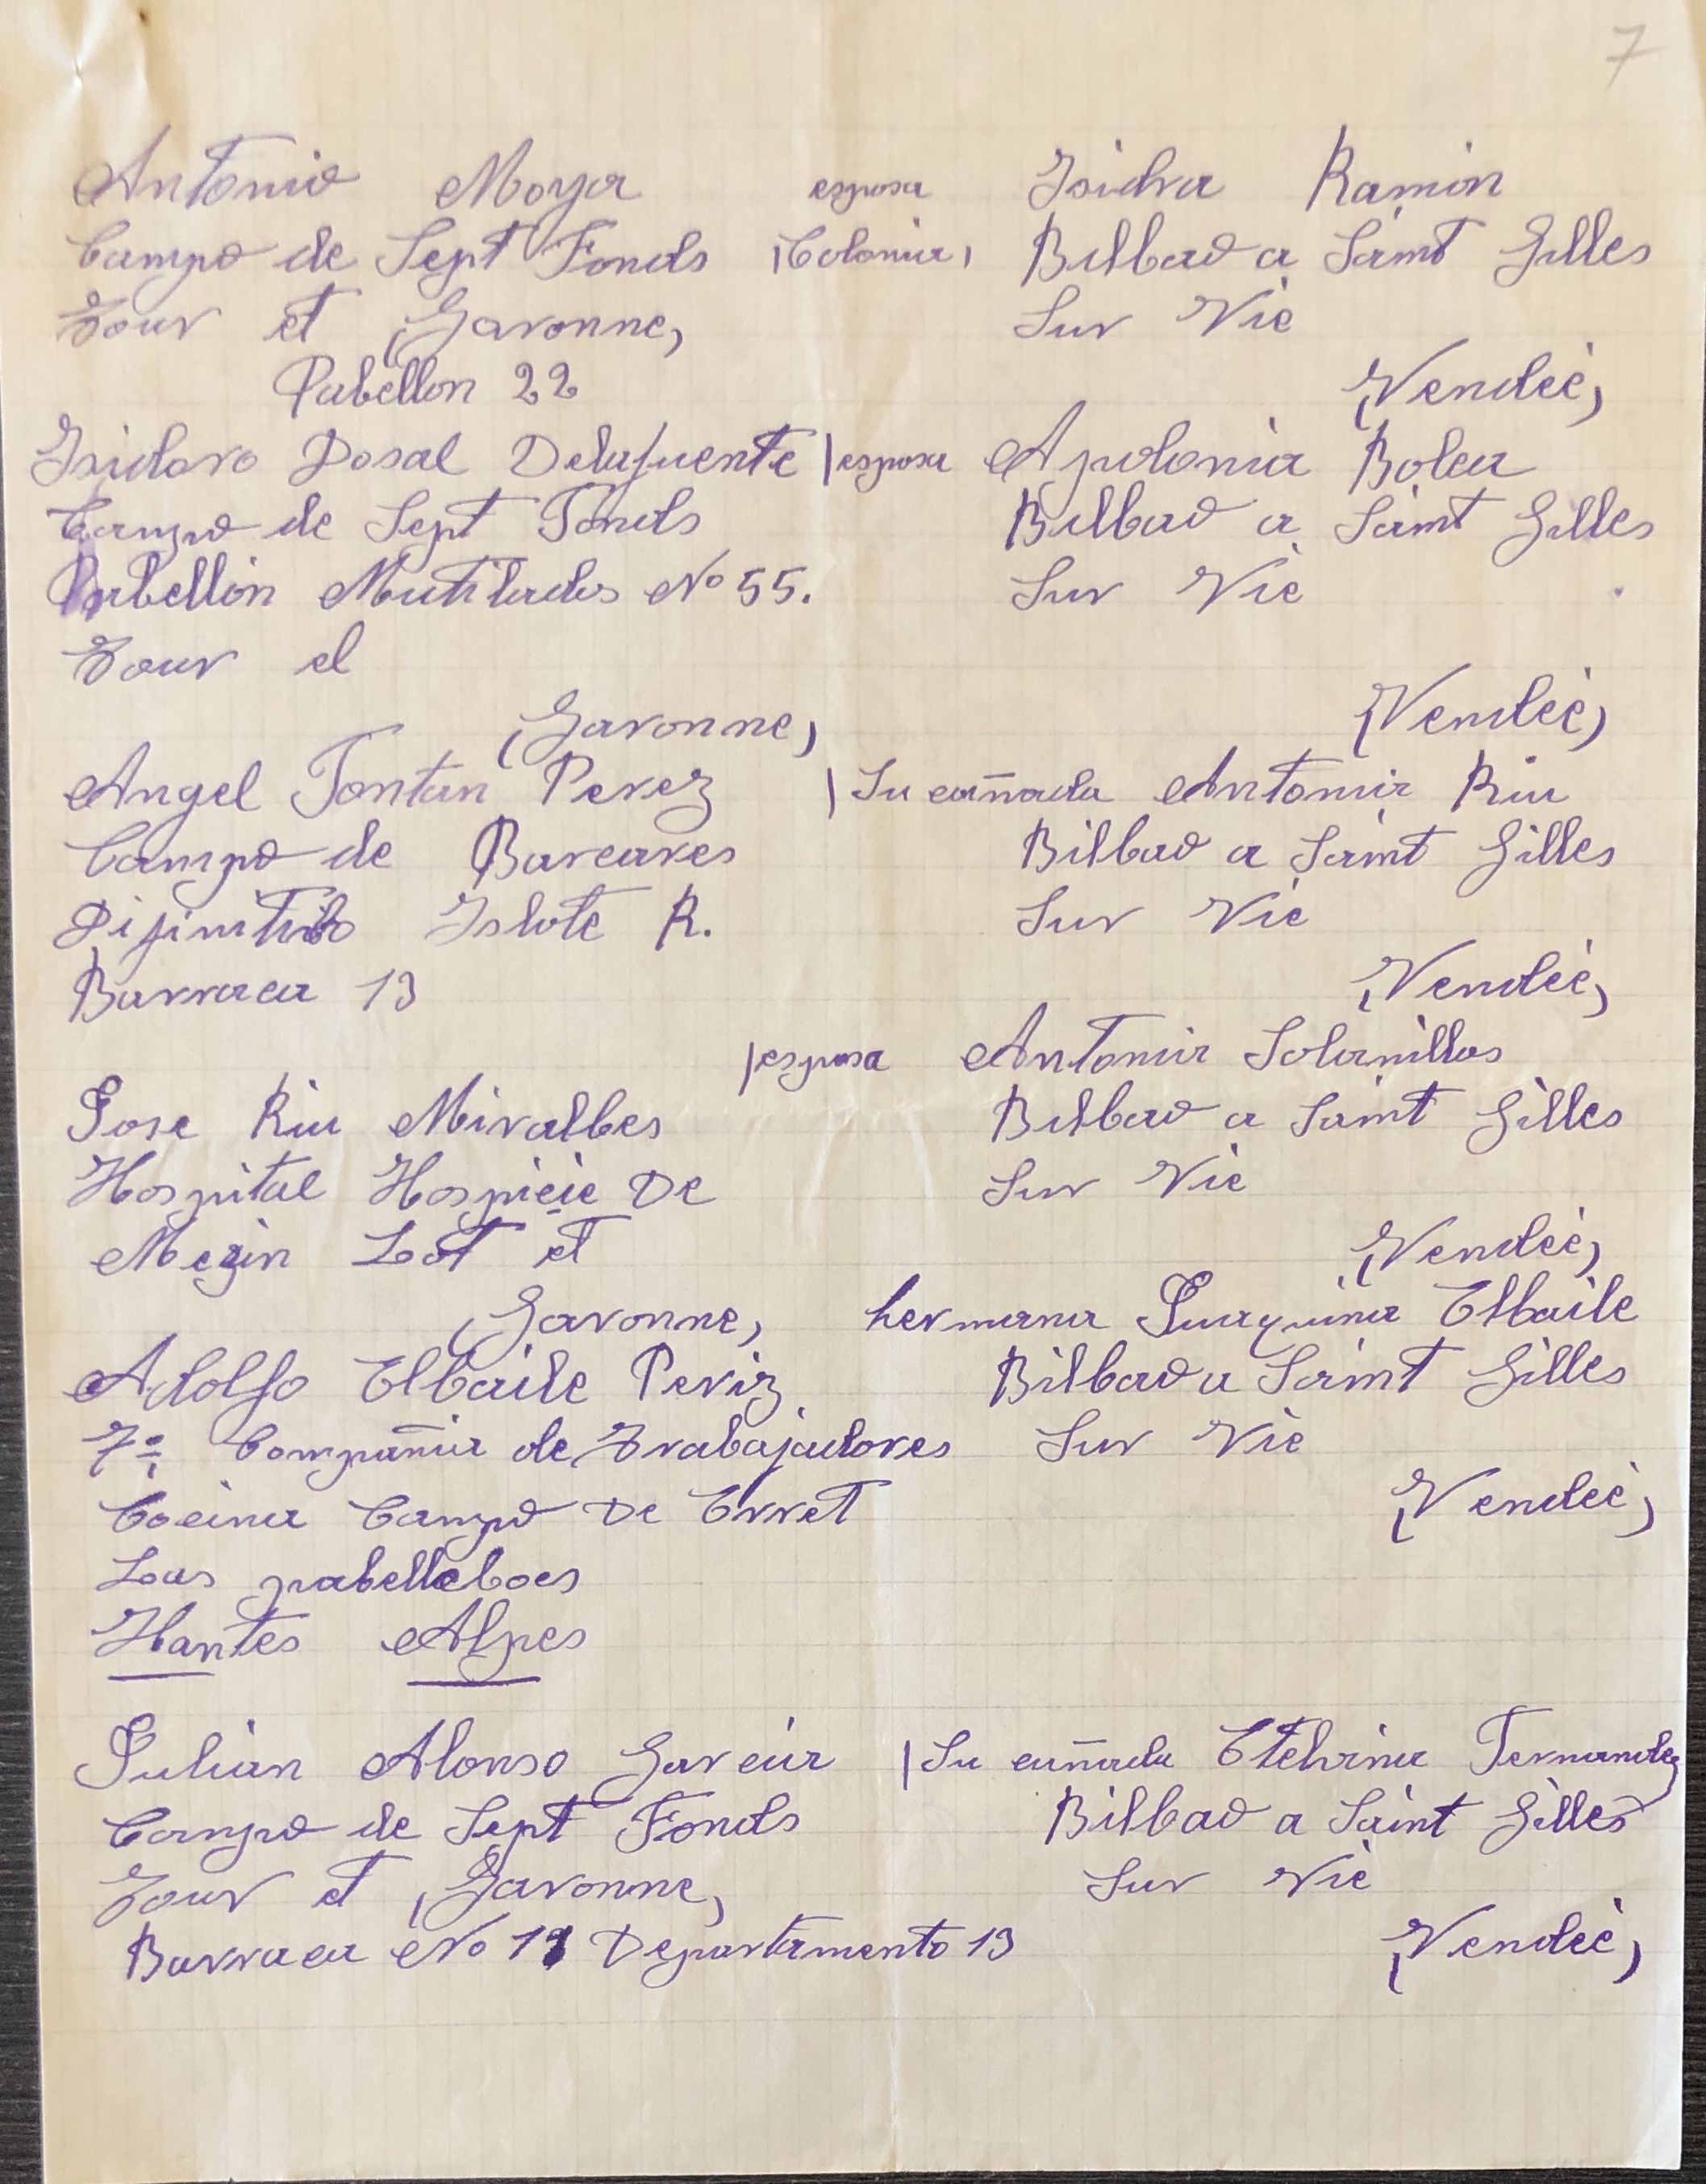 7
Antonio Moya esposa Isidra Ramón
Campo de Sept Fonds (Colonia) Bilbao a Saint Gilles
Tour et (Garonne) Sur Vie
Pabellon 22 (Vendée)
Isidoro Dosal Delafuente | esposa Apolonia Bolea
Campo de Sept Fonds Bilbao a Saint Gilles
Pabellón Mutilados No 55. Sur Vie
Tour el
(Garonne) (Vendée)
Angel Fontan Perez | Su cuñada Antonia Riu
Campo de Barcares Bilbao a Saint Gilles
Difinitibo Islote R. Sur Vie
Barraca 13 (Vendée)
| esposa Antonia Solanillas
Jose Riu Miralbes Bilbao a Saint Gilles
Hospital Hospicie De Sur Vie
Mezin Lot et (Vendée)
(Garonne) hermana Juaquina Elbaile
Adolfo Elbaile Periz Bilbao a Saint Gilles
7ª Compañia de Trabajadores Sur Vie
Cocina Campo De Crret (Vendée)
Las
Hantes Alpes
Julian Alonso Garcia | Su cuñada Etelvina Fernandez
Campo de Sept Fonds Bilbao a Saint Gilles
Tour et (Garonne) Sur Vie
Barraca No Departamento 13 (Vendée)